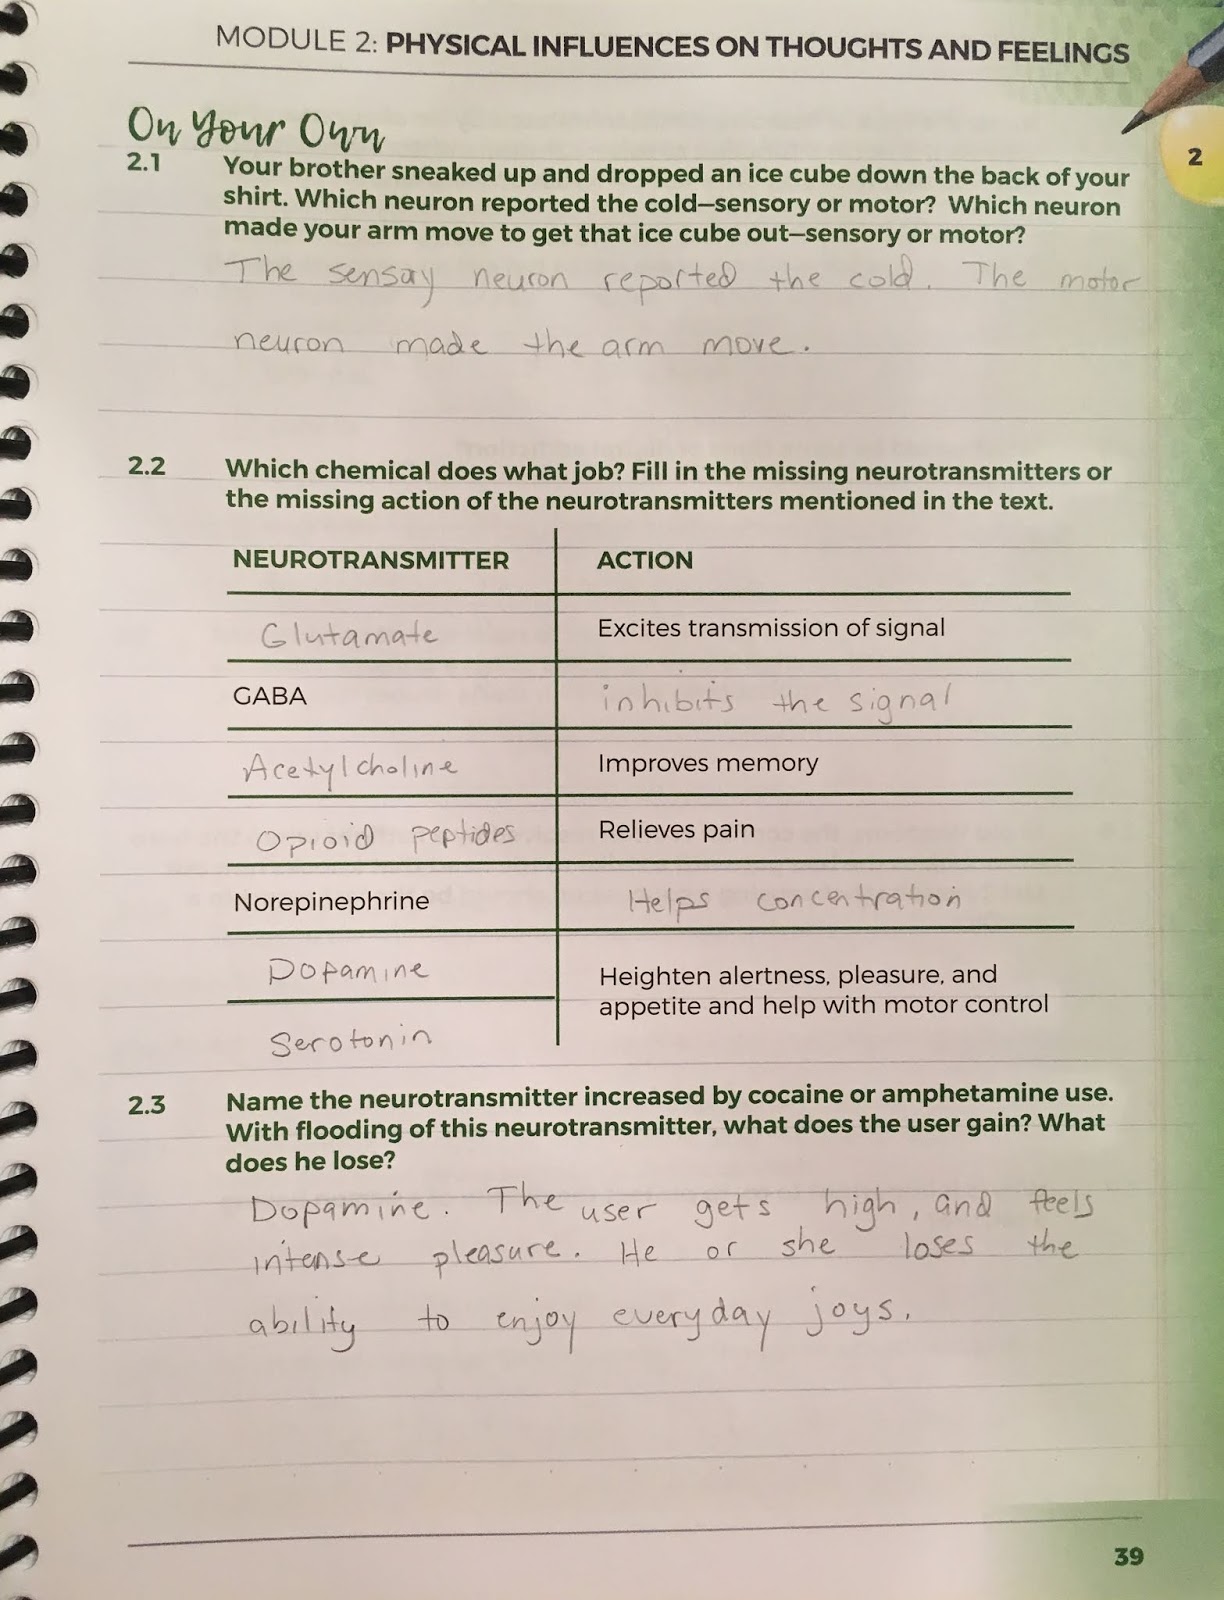 MODULE 2: PHYSICAL INFLUENCES ON THOUGHTS AND FEELINGS
2
On Your Own
2.1 Your brother sneaked up and dropped an ice cube down the back of your
shirt. Which neuron reported the cold—sensory or motor? Which neuron
made your arm move to get that ice cube out—sensory or motor?
The sensay neuron reported the cold. The motor
neuron made the arm move.
2.2 Which chemical does what job? Fill in the missing neurotransmitters or
the missing action of the neurotransmitters mentioned in the text.
NEUROTRANSMITTER ACTION
Glutamate Excites transmission of signal
GABA inhibits the signal
Acetylcholine Improves memory
Opioid peptides Relieves pain
Norepinephrine Helps concentration
Dopamine Heighten alertness, pleasure, and
appetite and help with motor control
Serotonin
2.3 Name the neurotransmitter increased by cocaine or amphetamine use.
With flooding of this neurotransmitter, what does the user gain? What
does he lose?
Dopamine. The user gets high, and feels
intense pleasure. He or she loses the
ability to enjoy everyday joys.
39